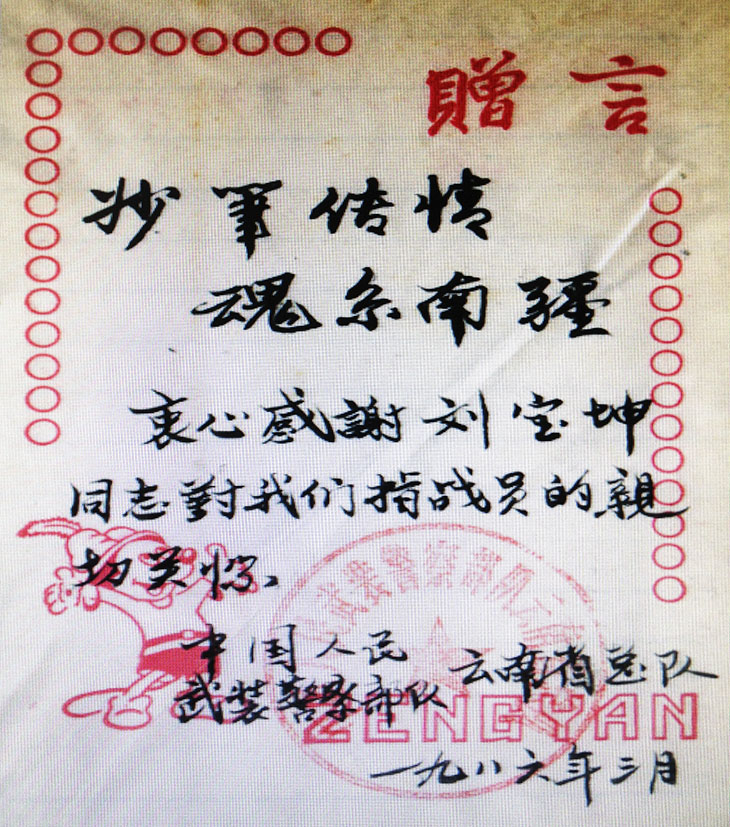 贈言
妙筆传情
魂系南疆
衷心感謝刘宝坤
同志對我们指战员的親
切关怀、
中国人民
武装警察部队 云南省总队
ZENGYAN
一九八六年三月